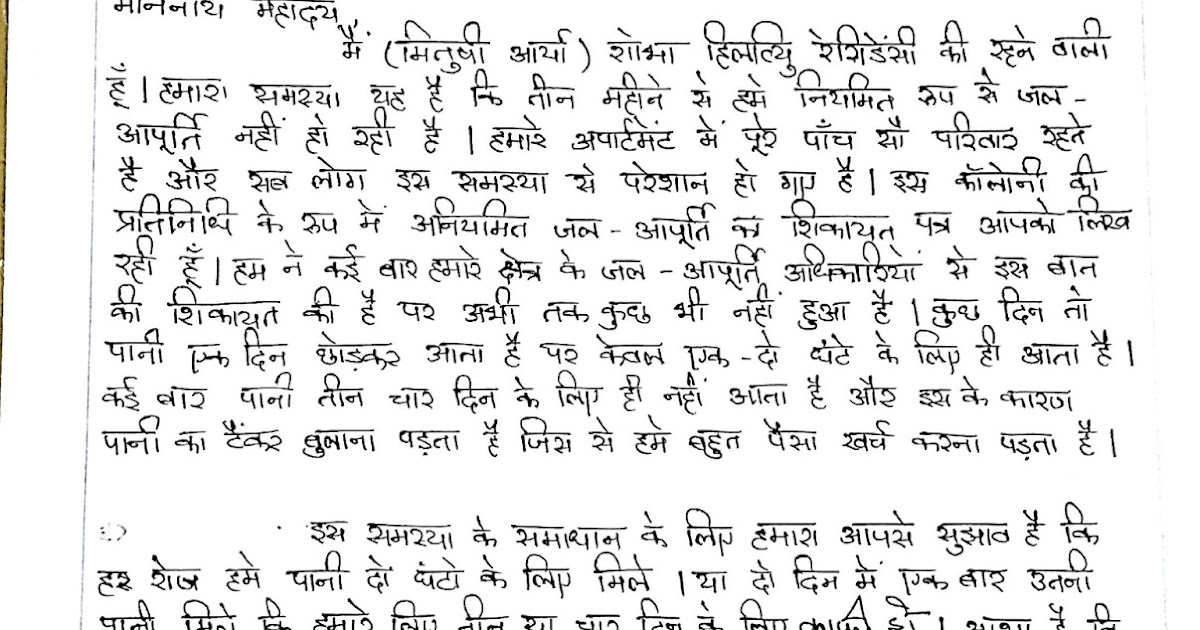 माननीय महोदय
मैं (मितुषी आर्या) शोभा हिलव्यि रेसिडेंसी की रहने वाली
हूँ। हमारा समस्या यह है कि तीन महीने से हमे नियमित रुप से जल-
आपूर्ति नहीं हो रही है। हमारे अपार्टमेंट में पूरे पाँच सौ परिवार रहते
है और सब लोग इस समस्या से परेशान हो गए है। इस कॉलोनी की
प्रतिनिधि के रुप में अनियमित जल-आपूर्ति का शिकायत पत्र आपको लिख
रही हूँ। हम ने कई बार हमारे क्षेत्र के जल-आपूर्ति अधिकारियों से इस बात
की शिकायत की है पर अभी तक कुछ भी नहीं हुआ है। कुछ दिन तो
पानी एक दिन छोड़कर आता है पर केवल एक-दो घंटे के लिए ही आता है।
कई बार पानी तीन चार दिन के लिए ही नहीं आता है और इस के कारण
पानी का टैंकर बुलाना पड़ता है जिस से हमे बहुत पैसा खर्च करना पड़ता है।
इस समस्या के समाधान के लिए हमारा आपसे सुझाव है कि
हर रोज हमे पानी दो घंटो के लिए मिले। या दो दिन में एक बार उतनी
पानी मिले कि हमारे लिए तीन या चार दिन के लिए काफी हो। आशा है कि